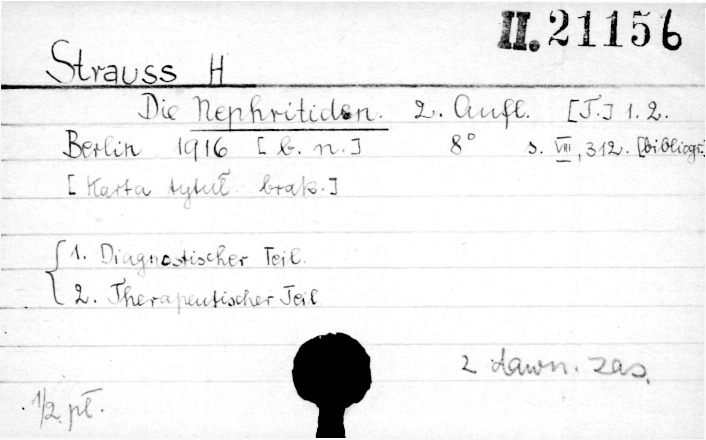 II. 21156
Strauss H
Die Nephritiden. 2. Aufl. [T.] 1. 2.
Berlin 1916 [b. n.] 8° s. VIII, 312. [bibliogr.]
[Karta tytuł. brak.]
1. Diagnostischer Teil.
2. Therapeutischer Teil
2 dawn. zas.
1/2 pł.